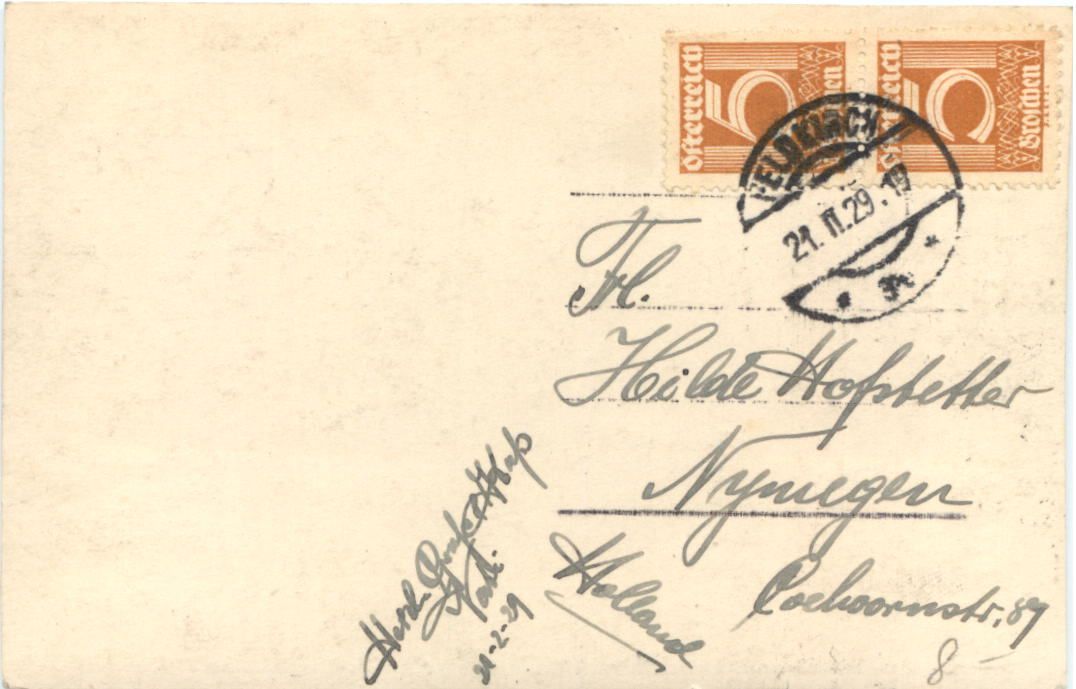 Österreich 5 Groschen
Österreich 5 Groschen
FELDKIRCH
21.II.29.19
Fl.
Hilde Hofstetter
Nymegen
Holland
Coehoornstr. 89
8
Herzl. Grüße &
21-2-29